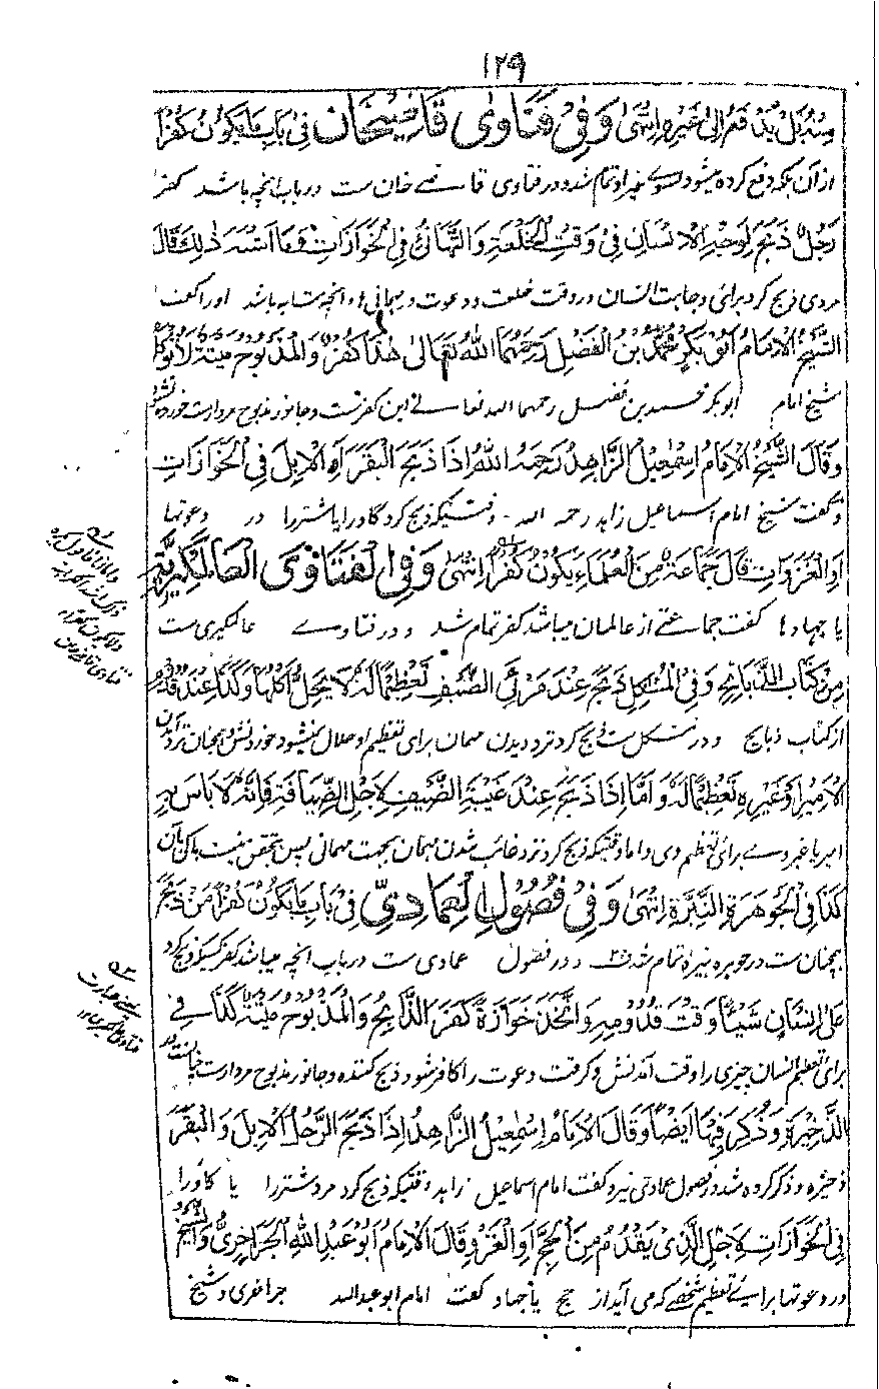 ۱۲۹
مِنْهُ بَلْ يُدْفَعُ اِلٰى غَيْرِهِ اِنْتَهٰى وَفِيْ فَتَاوٰى قَاضِيْخَان فِيْ بَابِ مَا يَكُوْنُ كُفْرًا
از آن بلکه دفع کرده میشود بسوے غیر او تمام شد و در فتاوی قاضے خان ست در باب آنچه باشد کفر
رَجُلٌ ذَبَحَ لِوَجْهِ الْاِنْسَانِ فِيْ وَقْتِ الْخِلْعَةِ وَالتَّهَانِيْ فِي الْخَوَازَاتِ وَمَا اَشْبَهَ ذٰلِكَ قَالَ
مردی ذبح کرد برای وجاهت انسان در وقت خلعت و دعوت و مهمانی و آنچه مشابه باشد او را گفت
الشَّيْخُ الْاِمَامُ اَبُوْ بَكْرٍ مُحَمَّدُ بْنُ الْفَضْلِ رَحِمَهُمَا اللهُ تَعَالٰى هٰذَا كُفْرٌ وَالْمَذْبُوْحُ مَيْتَةٌ لَا يُوْكَلُ
شیخ امام ابوبکر محمد بن فضل رحمهما الله تعالے این کفرست و جانور مذبوح مردارست خورده نشود
وَقَالَ الشَّيْخُ الْاِمَامُ اِسْمٰعِيْلُ الزَّاهِدُ رَحِمَهُ اللهُ اِذَا ذَبَحَ الْبَقَرَ اَوِ الْاِبِلَ فِي الْخَوَازَاتِ
و گفت شیخ امام اسماعیل زاهد رحمه الله وقتیکه ذبح کرد گاو را یا شتر را در دعوتها
اَوِ الْغَزَوَاتِ قَالَ جَمَاعَةٌ مِنَ الْعُلَمَاءِ يَكُوْنُ كُفْرًا اِنْتَهٰى وَفِي الْفَتَاوٰى الْعَالَمْگِيْرِيَّةِ
یا جهادها گفت جماعتے از عالمان میباشد کفر تمام شد و در فتاوے عالمگیری ست
مِنْ كِتَابِ الذَّبَائِحِ وَفِي الْمُشْكِلِ ذَبَحَ عِنْدَ مَرْئَى الضَّيْفِ تَعْظِيْمًا لَهٗ لَا يَحِلُّ اَكْلُهَا وَكَذَا عِنْدَ قُدُوْمِ
از کتاب ذبایح و در مشکل ست ذبح کرد نزد دیدن مهمان برای تعظیم او حلال نمیشود خوردنش و همچنان نزد آمدن
الْاَمِيْرِ اَوْ غَيْرِهِ تَعْظِيْمًا لَهٗ وَاَمَّا اِذَا ذَبَحَ عِنْدَ غَيْبَةِ الضَّيْفِ لِاَجْلِ الضِّيَافَةِ فَاِنَّهٗ لَا بَاْسَ بِهٖ
امیر یا غیر وے برائے تعظیم وی و اما وقتیکه ذبح کرد نزد غائب شدن مهمان بجهت مهمانی پس بتحقیق نیست باکی بآن
كَذَا فِي الْجَوْهَرَةِ النَّيِّرَةِ اِنْتَهٰى وَفِيْ فُصُوْلِ الْعِمَادِيِّ فِيْ بَابِ مَا يَكُوْنُ كُفْرًا مَنْ ذَبَحَ
همچنان ست در جوهره نیره تمام شد و در فصول عمادی ست در باب آنچه میباشد کفر کسیکه ذبح کرد
عَلٰى اِنْسَانٍ شَيْئًا وَقْتَ قُدُوْمِهٖ وَاتَّخَذَ خَوَازَةً كَفَرَ الذَّابِحُ وَالْمَذْبُوْحُ مَيْتَةٌ كَذَا فِي
برائے تعظیم انسان چیزی را وقت آمدنش و گرفت دعوت را کافر شود ذبح کننده و جانور مذبوح مردارست چنانست در
الذَّخِيْرَةِ وَذُكِرَ فِيْهَا اَيْضًا وَقَالَ الْاِمَامُ اِسْمٰعِيْلُ الزَّاهِدُ اِذَا ذَبَحَ الرَّجُلُ الْاِبِلَ وَالْبَقَرَ
ذخیره و ذکر کرده شد در فصول عمادی نیز و گفت امام اسماعیل زاهد وقتیکه ذبح کرد مرد شتر را یا گاو را
فِي الْخَوَازَاتِ لِاَجْلِ الَّذِيْ يَقْدُمُ مِنَ الْحَجِّ اَوِ الْغَزْوِ قَالَ الْاِمَامُ اَبُوْ عَبْدِ اللهِ الْجَرَاخِرِيُّ وَالشَّيْخُ
در دعوتها برائے تعظیم شخصے که می آید از حج یا جهاد گفت امام ابو عبدالله جراخری و شیخ